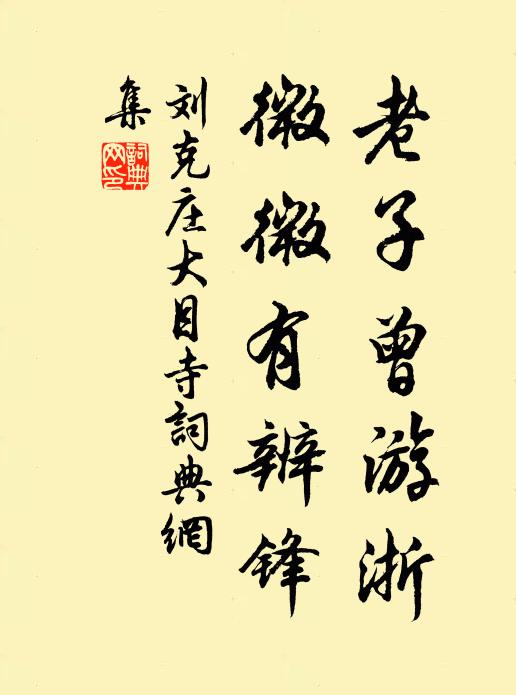 老子曾游浙
微微有辨锋
刘克庄大目寺詞典網
集
詞典网印